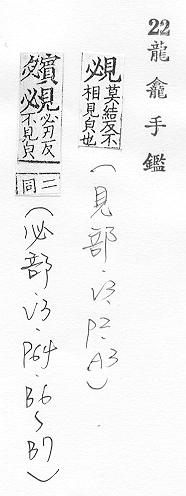 22龍龕手鑑
覕莫結反不相見皃也
(見部.V3.P2.A3)
覕必刃反不見皃二同
(必部.V3.P64.B6~B7)